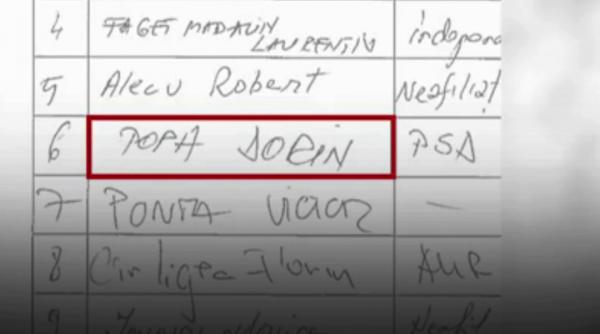 4 FAGET MADALIN
LAURENTIU
5 Alecu Robert Neafiliat
6 POPA SORIN PSD
7 PONTA VICTOR —
8 Cirligea Florin AUR
9